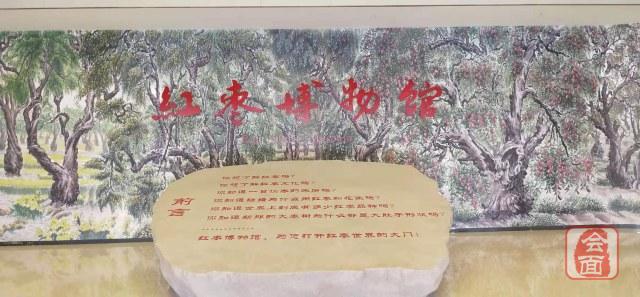 红枣博物馆
前言
你想了解红枣吗?
你想了解红枣文化吗?
你知道一百亿枣的来历吗?
你知道结婚为什么用红枣和花生吗?
你知道世界上到底有多少红枣品种吗?
你知道新郑的大枣树为什么都是大肚子形状吗?
红枣博物馆,为您打开红枣世界的大门!
会面